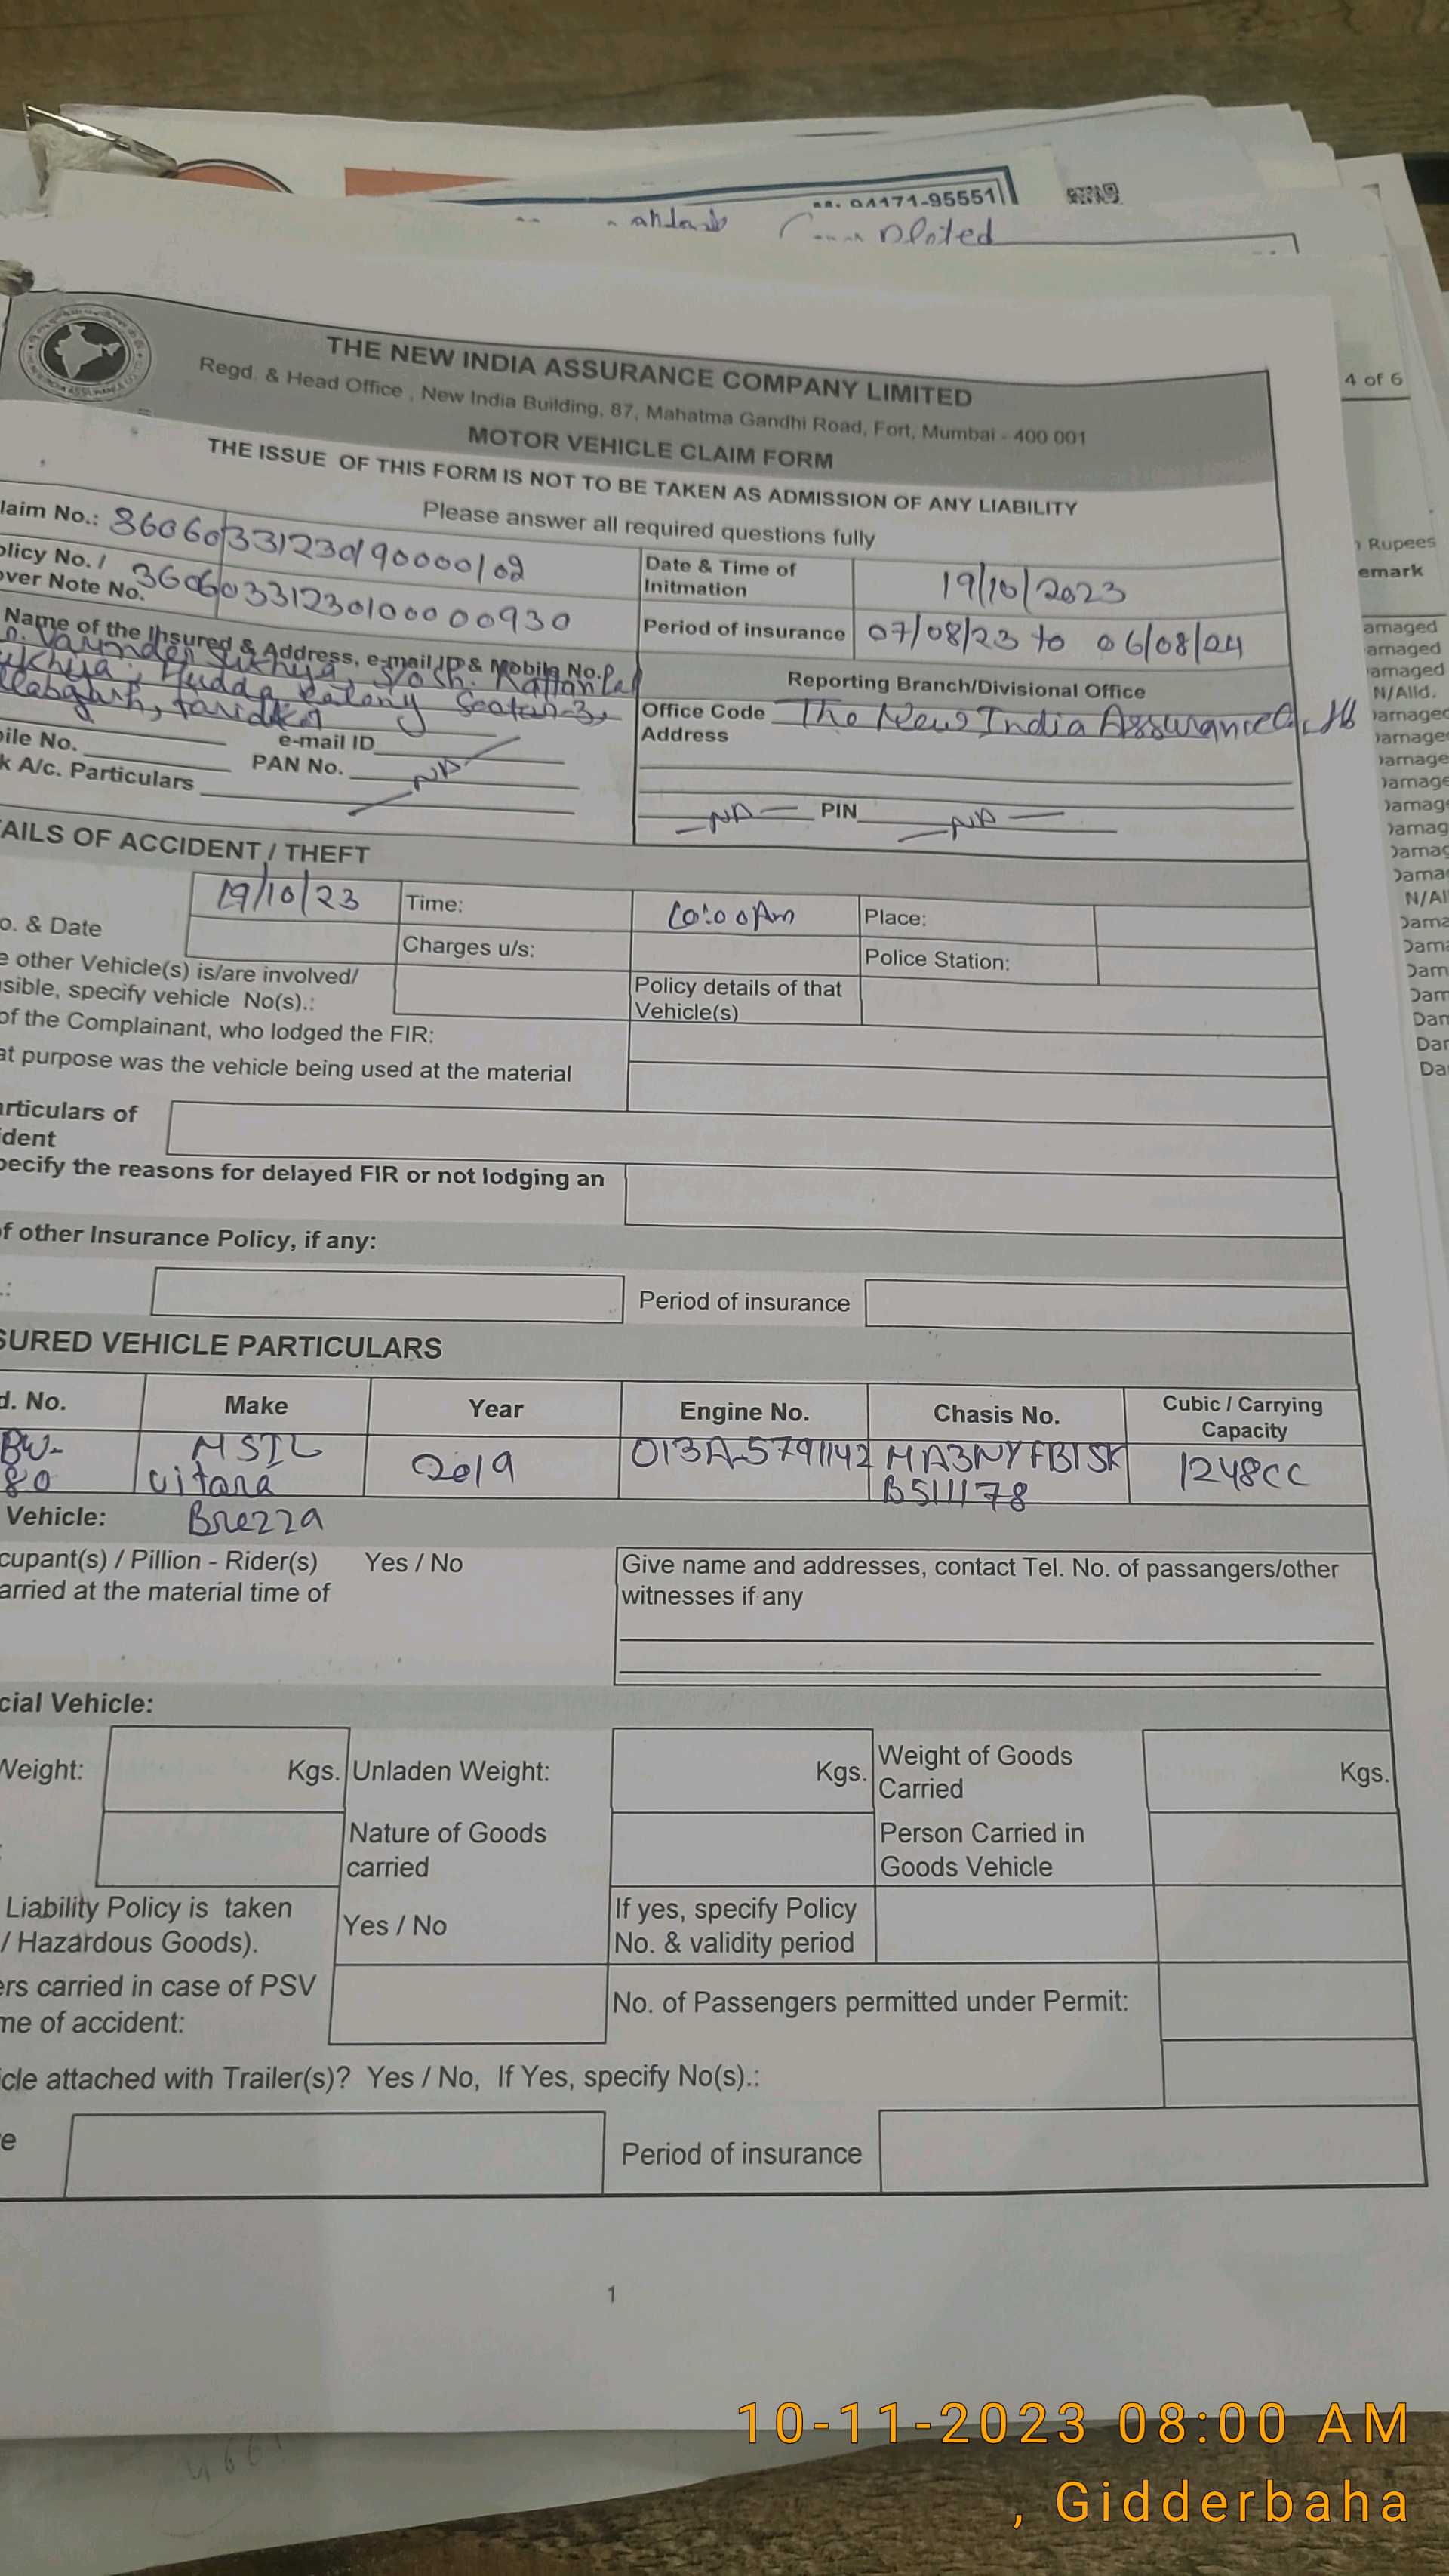 04171-95551
4 of 6
THE NEW INDIA ASSURANCE COMPANY LIMITED
Regd. & Head Office , New India Building, 87, Mahatma Gandhi Road, Fort, Mumbai - 400 001
MOTOR VEHICLE CLAIM FORM
THE ISSUE OF THIS FORM IS NOT TO BE TAKEN AS ADMISSION OF ANY LIABILITY
Please answer all required questions fully
laim No.:
olicy No. /
over Note No. 36060331230100000930
Date & Time of Initmation 19/10/2023
Period of insurance 07/08/23 to 06/08/24
Name of the Insured & Address, e-mail ID & Mobile No.
Reporting Branch/Divisional Office
Office Code The New India Assurance
Address
ile No. e-mail ID
k A/c. Particulars PAN No. NA
NA PIN NA
AILS OF ACCIDENT / THEFT
19/10/23 Time: 10:00Am Place:
o. & Date Charges u/s: Police Station:
e other Vehicle(s) is/are involved/
sible, specify vehicle No(s).:
Policy details of that
Vehicle(s)
of the Complainant, who lodged the FIR:
at purpose was the vehicle being used at the material
articulars of
ident
pecify the reasons for delayed FIR or not lodging an
of other Insurance Policy, if any:
Period of insurance
SURED VEHICLE PARTICULARS
d. No. Make Year Engine No. Chasis No. Cubic / Carrying
Capacity
BW- MSIL 2019 1248CC
80 Vitara
Vehicle: Brezza
cupant(s) / Pillion - Rider(s) Yes / No
arried at the material time of
Give name and addresses, contact Tel. No. of passangers/other
witnesses if any
cial Vehicle:
Weight: Kgs. Unladen Weight: Kgs. Weight of Goods
Carried Kgs.
Nature of Goods
carried
Person Carried in
Goods Vehicle
Liability Policy is taken
/ Hazardous Goods).
Yes / No
If yes, specify Policy
No. & validity period
ers carried in case of PSV
me of accident:
No. of Passengers permitted under Permit:
cle attached with Trailer(s)? Yes / No, If Yes, specify No(s).:
e Period of insurance
1
10-11-2023 08:00 AM
, Gidderbaha